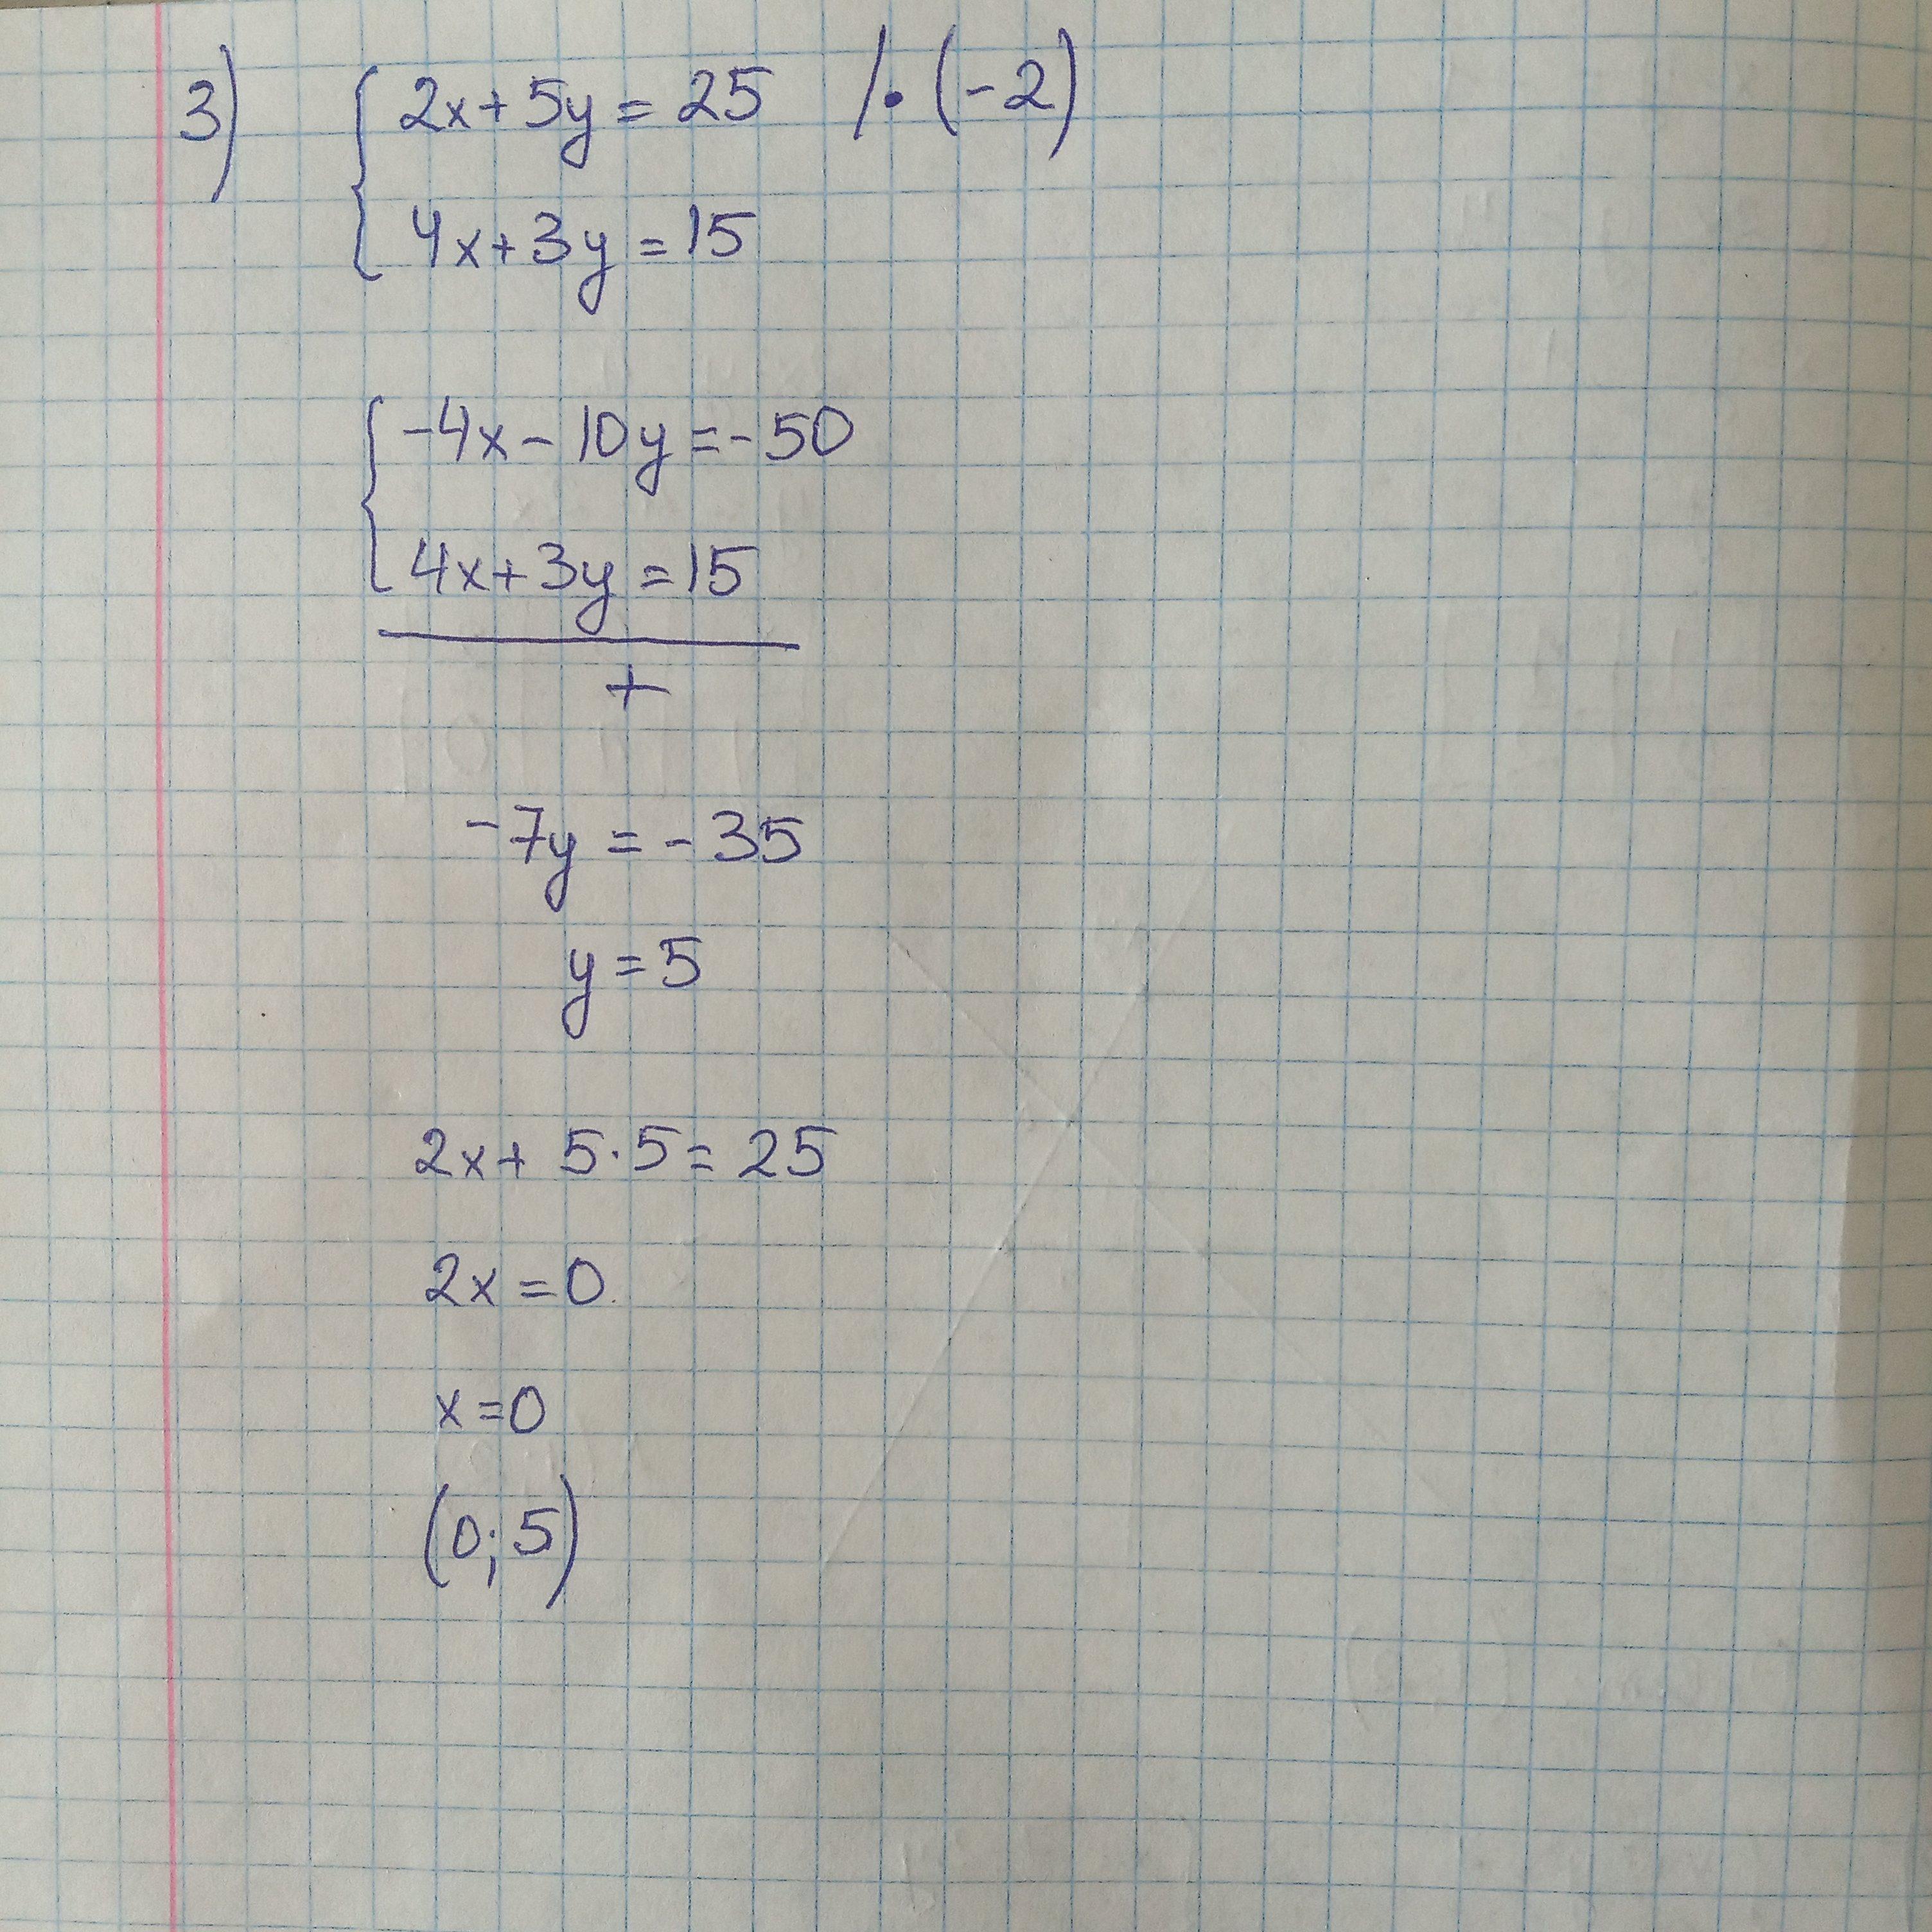 3) { 2x + 5y = 25 / · (-2)
4x + 3y = 15
{ -4x - 10y = -50
4x + 3y = 15
+
-7y = -35
y = 5
2x + 5·5 = 25
2x = 0
x = 0
(0; 5)